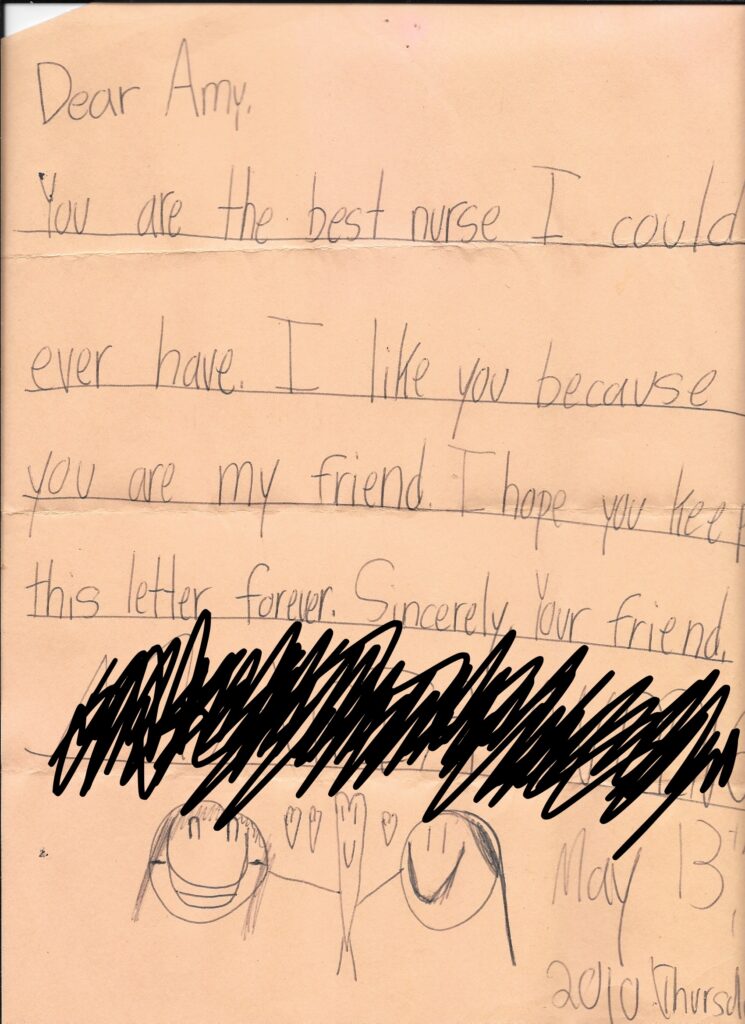 Dear Amy,
You are the best nurse I could
ever have. I like you because
you are my friend. I hope you keep
this letter forever. Sincerely, Your friend,
May 13th,
2010 Thursd